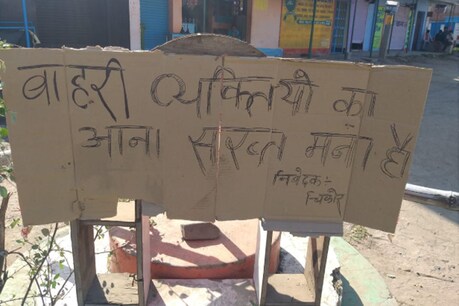 वाहरी व्यक्तियो का
आना सख्त मना है
निवेदक:-